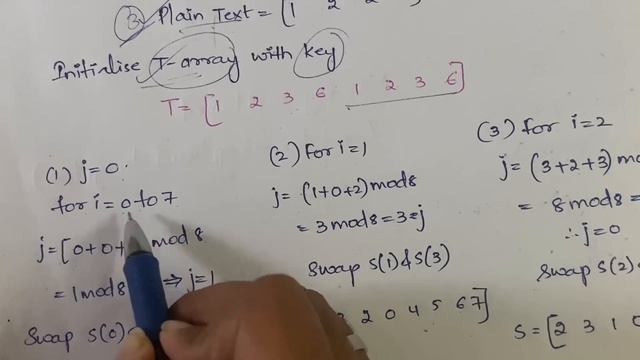 ③ Plain Text = [1 2
Initialise T-array with key
T = [1 2 3 6 1 2 3 6]
(1) j=0.
for i=0 to 7
j=[0+0+ mod 8
= 1 mod 8 ⇒ j=1
Swap S(0)
(2) for i=1
j= (1+0+2) mod 8
= 3 mod 8 = 3 = j
Swap S(1) & S(3)
3 2 0 4 5 6 7]
(3) for i=2
j= (3+2+3) mod
= 8 mod 8 =
∴ j=0
Swap S(2)
S = [2 3 1 0